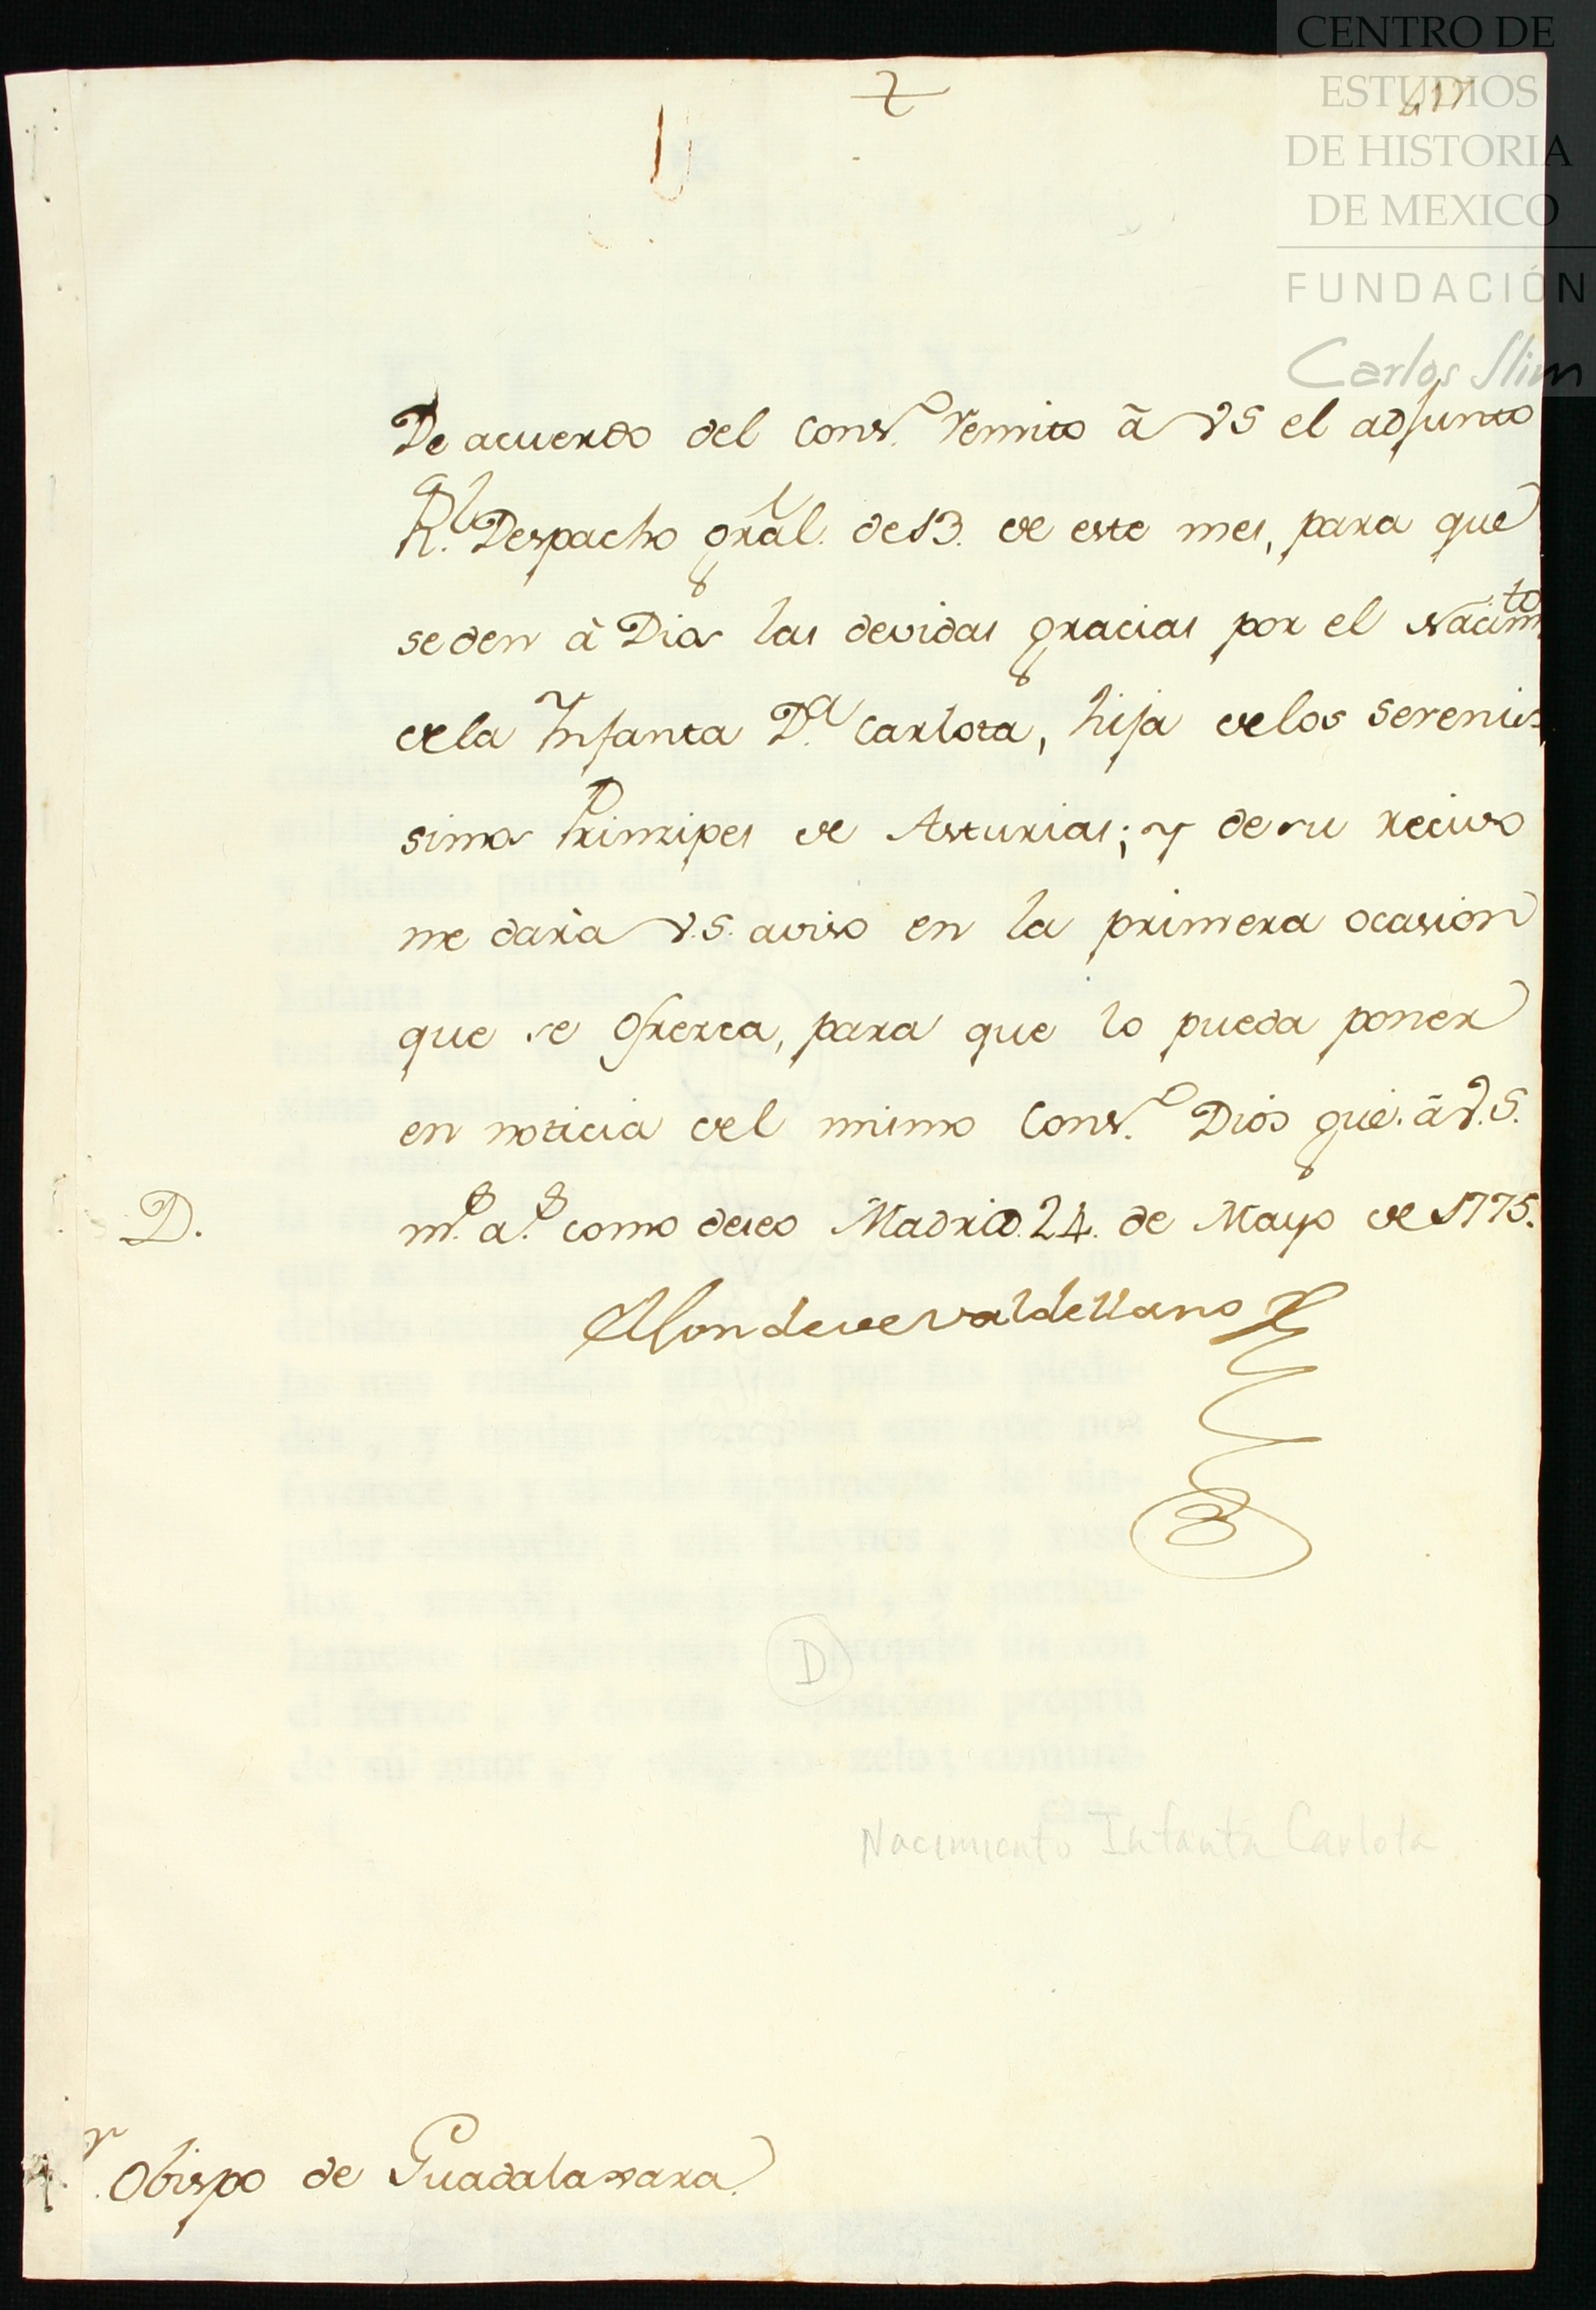 CENTRO DE
ESTUDIOS
DE HISTORIA
DE MEXICO
FUNDACIÓN
Carlos Slim
417
De acuerdo del Cons.º remito â VS el adjunto
R.l Despacho gral. de 13. de este mes, para que
se den â Dios las devidas gracias por el Nacim.to
de la Infanta D.a Carlota, hija de los Serenis-
simos Prinzipes de Asturias; y de su recivo
me darà V.S. aviso en la primera ocasion
que se ofrezca, para que lo pueda poner
en noticia del mismo Cons.º Dios gûe. â V.S.
D.
m.s a.s como deseo Madrid. 24. de Mayo de 1775.
El Conde de Valdellano
D
Nacimiento Infanta Carlota
S.r Obispo de Guadalaxara.